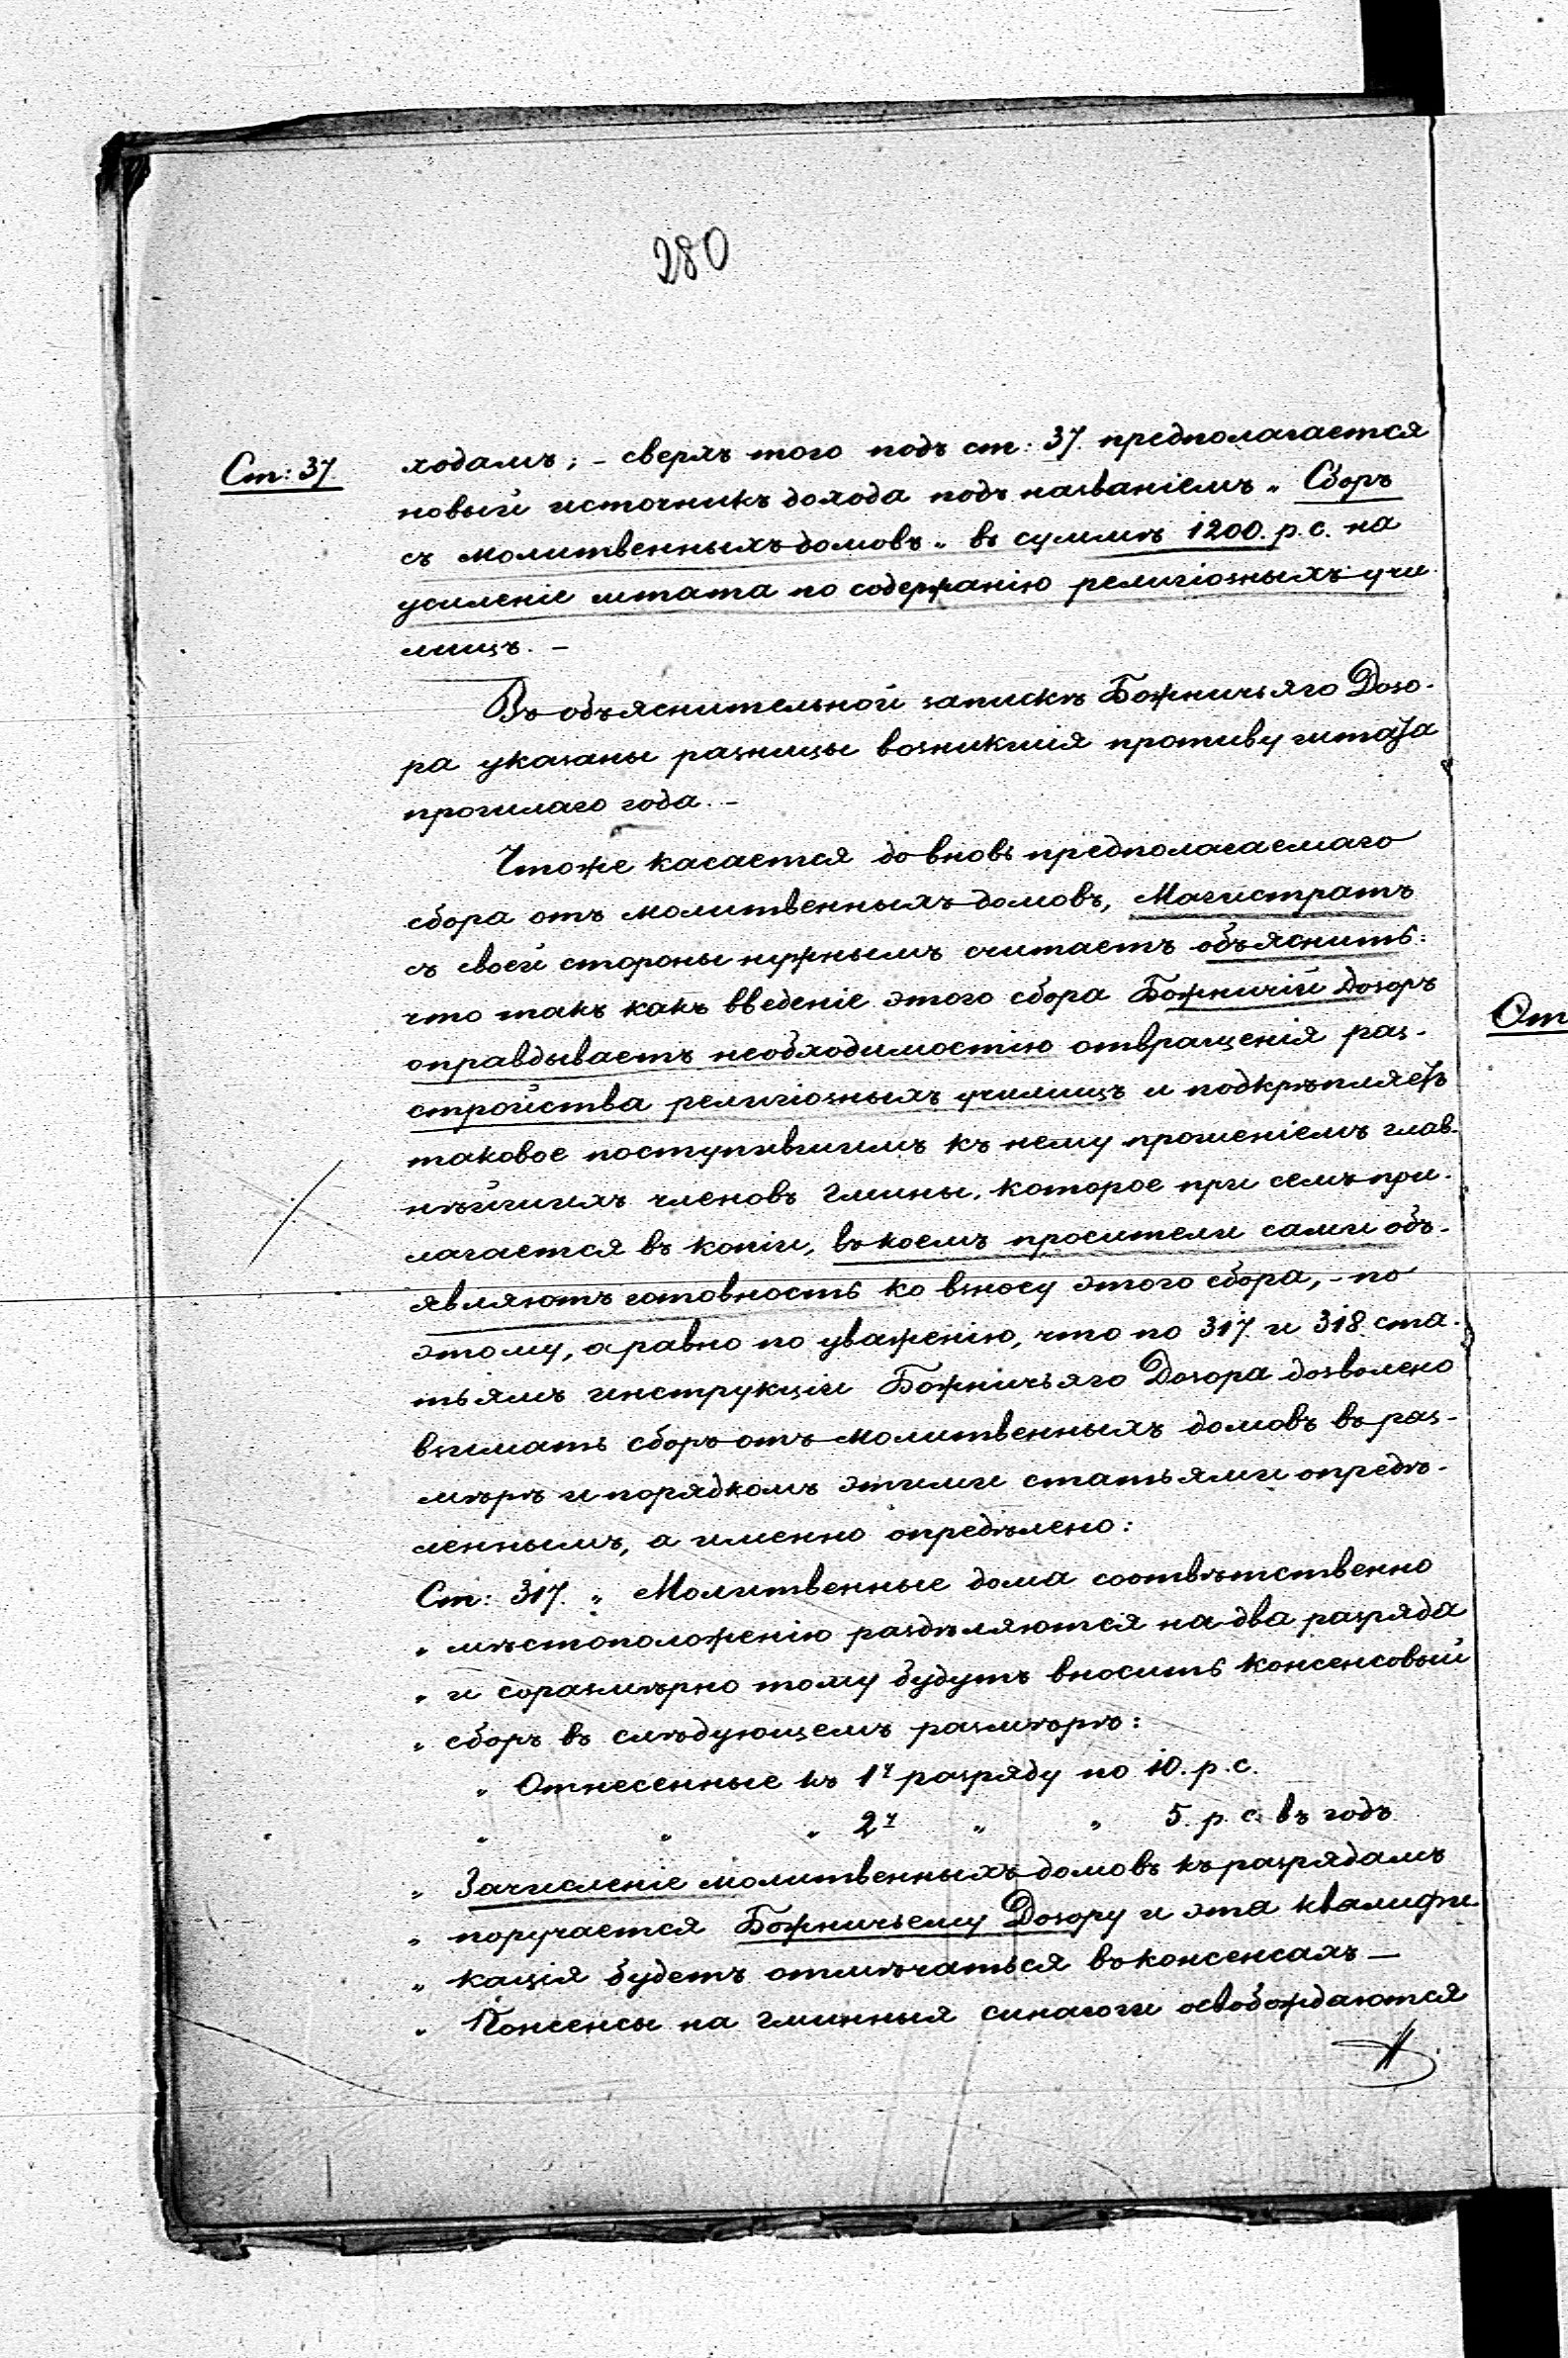 280
Ст: 37.
ходамъ; – сверхъ того подъ ст: 37. предполагается
новый источникъ дохода подъ названіемъ „ Сборъ
съ молитвенныхъ домовъ „ въ суммѣ 1200. р. с. на
усиленіе штата по содержанію религіозныхъ учи
лищъ. –
Въ объяснительной запискѣ Божничьяго Дозо-
ра указаны разницы возникшія противу штата
прошлаго года. –
Чтоже касается до вновь предполагаемаго
сбора отъ молитвенныхъ домовъ, Магистратъ
съ своей стороны нужнымъ считаетъ объяснить:
что такъ какъ введеніе этого сбора Божничій Дозоръ
оправдываетъ необходимостію отвращенія раз-
стройства религіозныхъ училищъ и подкрѣпляетъ
таковое поступившимъ къ нему прошеніемъ глав-
нѣйшихъ членовъ Гмины, которое при семъ при-
лагается въ копіи, въ коемъ просители сами объ-
являютъ готовность ко взносу этого сбора, – по
этому, а равно по уваженію, что по 317. и 318. ста-
тьямъ инструкціи Божничьяго Дозора дозволено
взимать сборъ отъ молитвенныхъ домовъ въ раз-
мѣрѣ и порядкомъ этими статьями опредѣ-
леннымъ, а именно опредѣлено:
Ст: 317. „ Молитвенные дома соотвѣтственно
„ мѣстоположенію раздѣляются на два разряда
„ и соразмѣрно тому будутъ вносить консенсовый
„ сборъ въ слѣдующемъ размѣрѣ:
„ Отнесенные къ 1у разряду по 10. р. с.
„ „ „ 2у „ „ 5. р. с. въ годъ
„ Зачисленіе молитвенныхъ домовъ къ разрядамъ
„ поручается Божничьему Дозору и эта квалифи
„ кація будетъ отмѣчаться въ консенсахъ –
„ Консенсы на гминныя синагоги освобождаются
От